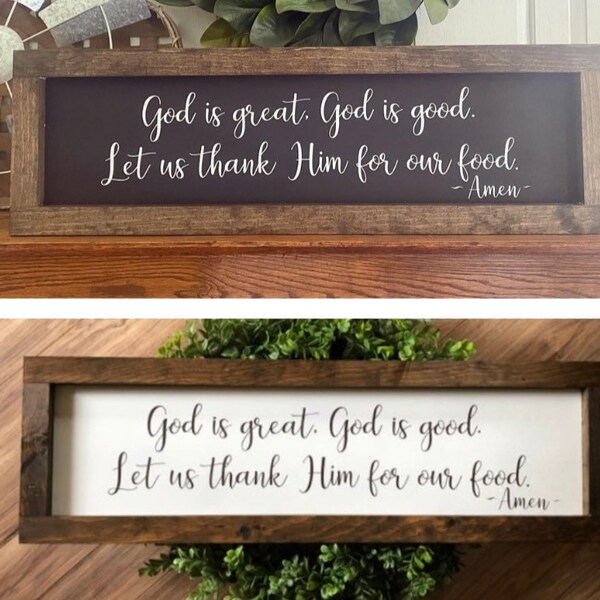 God is great. God is good.
Let us thank Him for our food.
-Amen-
God is great. God is good.
Let us thank Him for our food.
-Amen-